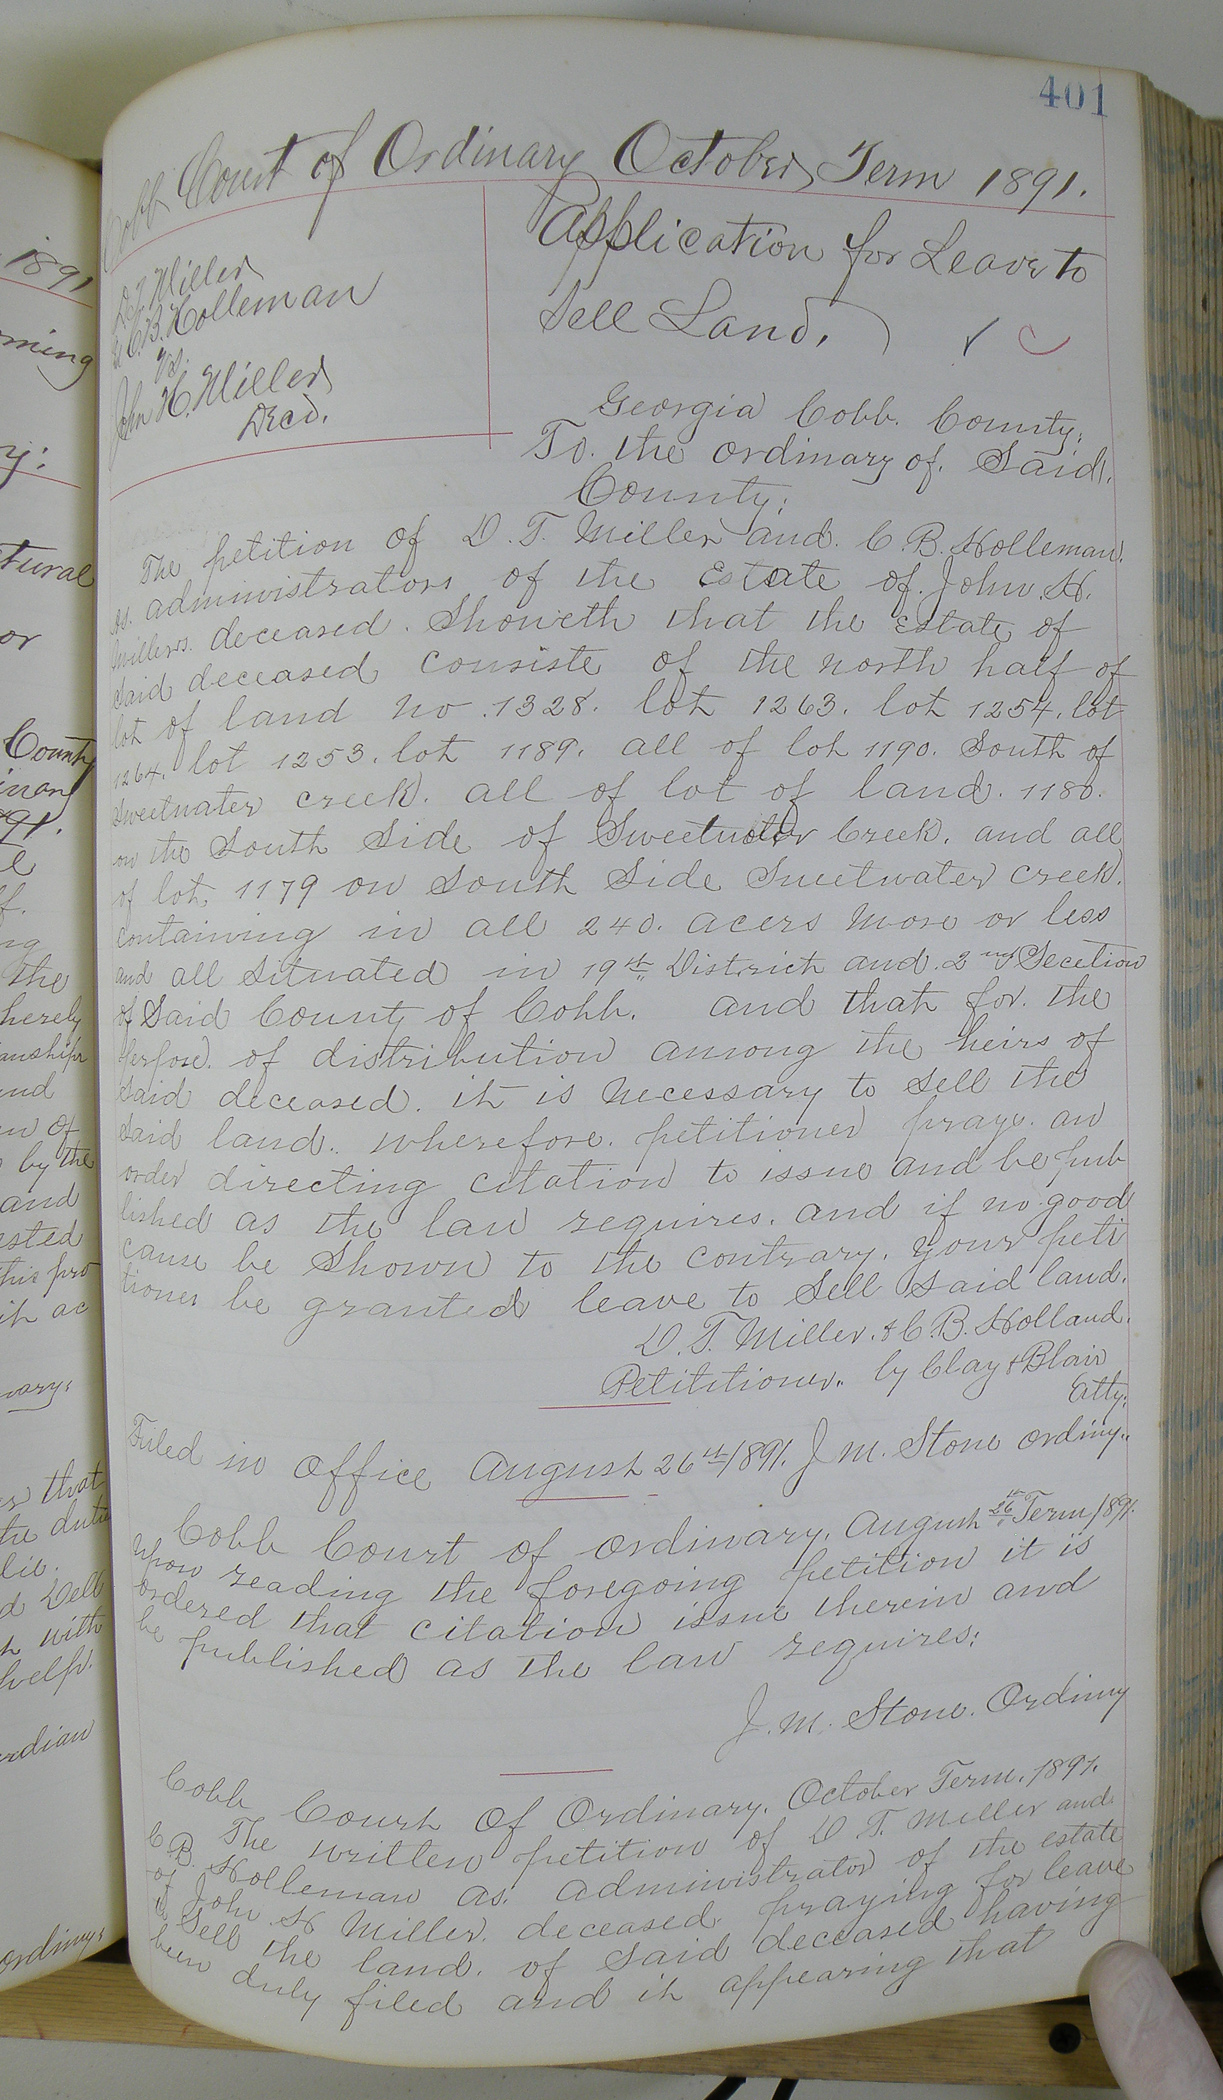 401
Cobb Court of Ordinary October Term 1891.
D.T. Miller
& C.B. Holleman
vs.
John H. Miller
Decd.
Application for Leave to
Sell Land.
Georgia Cobb. County:
To. the ordinary of. Said.
County:
The petition of D. T. Miller and. C. B. Holleman.
as. administrators of the Estate of. John. H.
Millers. deceased. Showeth that the Estate of
Said deceased consiste of the north half of
lot of land no. 1328. lot 1263. lot 1254. lot
1264. lot 1253. lot 1189. all of lot 1190. South of
Sweetwater creek. all of lot of land. 1180.
on the South Side of Sweetwater Creek. and all
of lot. 1179 on South Side Sweetwater creek.
Containing in all 240. acers more or less
and all Situated in 19th District and. 2nd Secetion
of Said County of Cobb. and that for. the
perpose. of distribution among the heirs of
Said deceased. it is necessary to Sell the
Said land. wherefore. petitioner praye. an
order directing citation to issue and be pub
lished as the law requires. and if no good
cause be Shown to the contrary. your peti
tioner be granted leave to Sell Said land.
D. T. Miller. & C. B. Holland.
Petititioner. by Clay & Blair
Atty.
Filed in office August 26th 1891. J. M. Stone ordiny..
Cobb Court of Ordinary. August 26th Term 1891.
Upon reading the foregoing petition it is
ordered that citation issue therein and
be published as the law requires:
J. M. Stone. Ordinny
Cobb Court of Ordinary. October Term. 1891.
The written petition of D. T. Miller and
C. B. Holleman as. administrator of the estate
of John. H Miller. deceased praying for leave
to Sell the land. of Said deceased having
been duly filed and it appearing that
1891
ming
ry:
tural
or
County
the
hereby
and
by the
and
ested
pro
it ac
that
the dutie
with
ordian
ordiny: